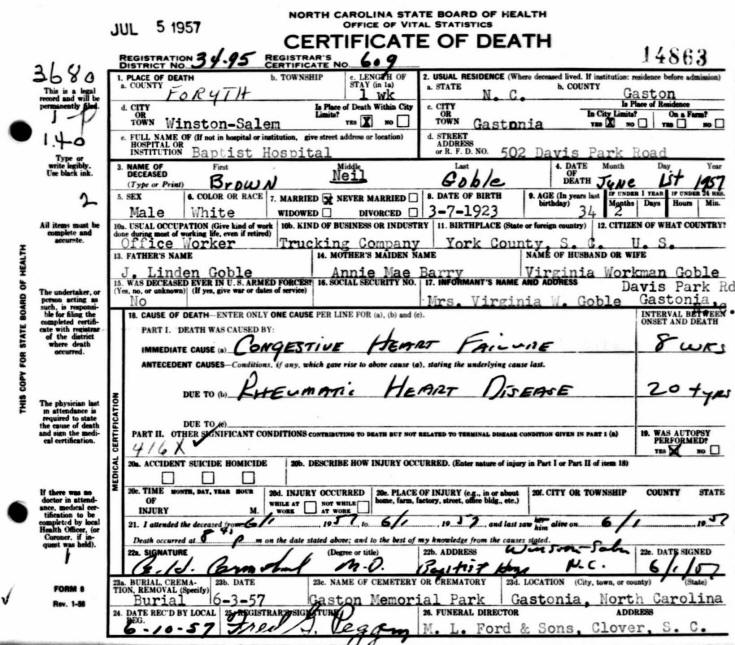 JUL 5 1957
NORTH CAROLINA STATE BOARD OF HEALTH
OFFICE OF VITAL STATISTICS
CERTIFICATE OF DEATH
REGISTRATION DISTRICT No. 34-95 REGISTRAR'S CERTIFICATE No. 609
14863
3680
This is a legal record and will be permanently filed.
140
Type or write legibly. Use black ink.
2
All items must be complete and accurate.
THIS COPY FOR STATE BOARD OF HEALTH
The undertaker, or person acting as such, is responsible for filing the completed certificate with registrar of the district where death occurred.
The physician last in attendance is required to state the cause of death and sign the medical certification.
If there was no doctor in attendance, medical certification to be completed by local Health Officer, (or Coroner, if inquest was held).
FORM 8
Rev. 1-56
1. PLACE OF DEATH
a. COUNTY FORYTH
b. TOWNSHIP
c. LENGTH OF STAY (in 1a) 1 wk
2. USUAL RESIDENCE (Where deceased lived. If institution: residence before admission)
a. STATE N. C.
b. COUNTY Gaston
d. CITY OR TOWN Winston-Salem
Is Place of Death Within City Limits? YES X NO
c. CITY OR TOWN Gastonia
Is Place of Residence
In City Limits? YES X NO
On a Farm? YES NO
e. FULL NAME OF (If not in hospital or institution, give street address or location) HOSPITAL OR INSTITUTION Baptist Hospital
d. STREET ADDRESS or R. F. D. NO. 502 Davis Park Road
3. NAME OF DECEASED (Type or Print) First BROWN Middle Neil Last Goble
4. DATE OF DEATH Month Day Year June 1st 1957
5. SEX Male
6. COLOR OR RACE White
7. MARRIED X NEVER MARRIED WIDOWED DIVORCED
8. DATE OF BIRTH 3-7-1923
9. AGE (In years last birthday) 34 IF UNDER 1 YEAR Months 2 Days IF UNDER 24 HRS. Hours Min.
10a. USUAL OCCUPATION (Give kind of work done during most of working life, even if retired) Office Worker
10b. KIND OF BUSINESS OR INDUSTRY Trucking Company
11. BIRTHPLACE (State or foreign country) York County, S. C.
12. CITIZEN OF WHAT COUNTRY? U. S.
13. FATHER'S NAME J. Linden Goble
14. MOTHER'S MAIDEN NAME Annie Mae Barry
NAME OF HUSBAND OR WIFE Virginia Workman Goble
15. WAS DECEASED EVER IN U. S. ARMED FORCES? (Yes, no, or unknown) (If yes, give war or dates of service) No
16. SOCIAL SECURITY NO.
17. INFORMANT'S NAME AND ADDRESS Davis Park Rd
Mrs. Virginia W. Goble Gastonia,
18. CAUSE OF DEATH—ENTER ONLY ONE CAUSE PER LINE FOR (a), (b) and (c).
INTERVAL BETWEEN ONSET AND DEATH
PART I. DEATH WAS CAUSED BY:
IMMEDIATE CAUSE (a) CONGESTIVE HEART FAILURE 8 WKS
ANTECEDENT CAUSES—Conditions, if any, which gave rise to above cause (a), stating the underlying cause last.
DUE TO (b) RHEUMATIC HEART DISEASE 20+yrs
DUE TO (c)
MEDICAL CERTIFICATION
PART II. OTHER SIGNIFICANT CONDITIONS CONTRIBUTING TO DEATH BUT NOT RELATED TO TERMINAL DISEASE CONDITION GIVEN IN PART I (a)
416X
19. WAS AUTOPSY PERFORMED? YES X NO
20a. ACCIDENT SUICIDE HOMICIDE
20b. DESCRIBE HOW INJURY OCCURRED. (Enter nature of injury in Part I or Part II of item 18)
20c. TIME OF INJURY MONTH, DAY, YEAR HOUR M.
20d. INJURY OCCURRED WHILE AT WORK NOT WHILE AT WORK
20e. PLACE OF INJURY (e.g., in or about home, farm, factory, street, office bldg., etc.)
20f. CITY OR TOWNSHIP COUNTY STATE
21. I attended the deceased from 6/1, 1957, to 6/1, 1957, and last saw her him alive on 6/1, 1957
Death occurred at 8 P m on the date stated above; and to the best of my knowledge from the causes stated.
22a. SIGNATURE (Degree or title) M.D.
22b. ADDRESS Winston-Salem
Baptist Hosp N.C.
22c. DATE SIGNED 6/1/57
23a. BURIAL, CREMATION, REMOVAL (Specify) Burial
23b. DATE 6-3-57
23c. NAME OF CEMETERY OR CREMATORY Gaston Memorial Park
23d. LOCATION (City, town, or county) (State) Gastonia, North Carolina
24. DATE REC'D BY LOCAL REG. 6-10-57
25. REGISTRAR'S SIGNATURE Fred G. Pegg
26. FUNERAL DIRECTOR ADDRESS
M. L. Ford & Sons, Clover, S. C.